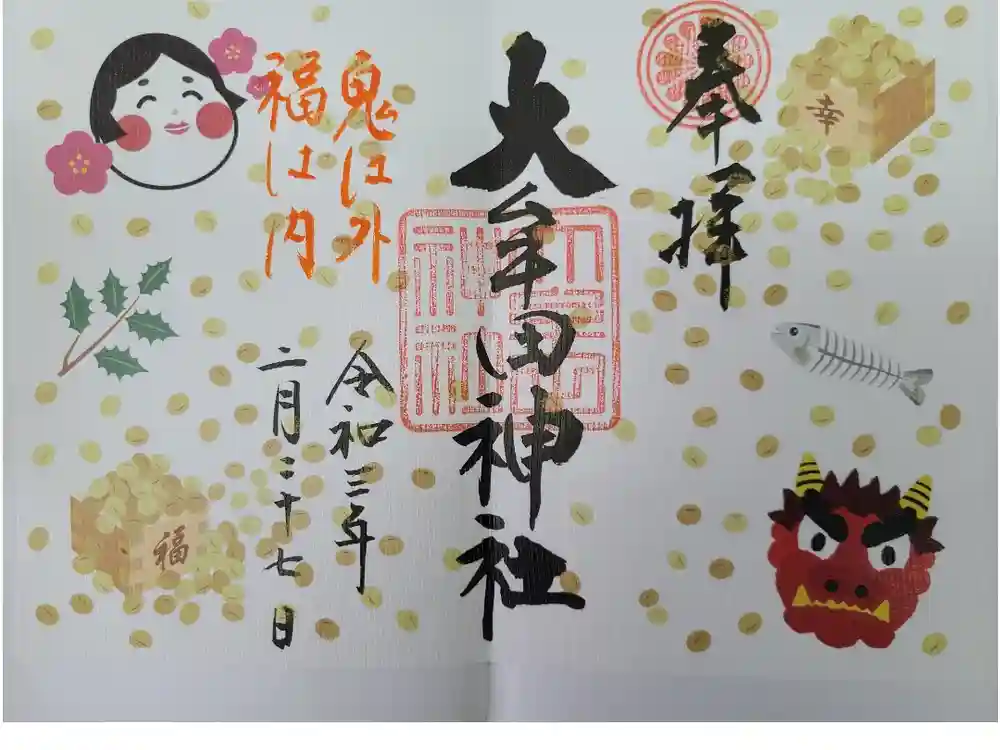 奉拝
幸
大牟田神社
鬼は外
福は内
令和三年
二月二十七日
福